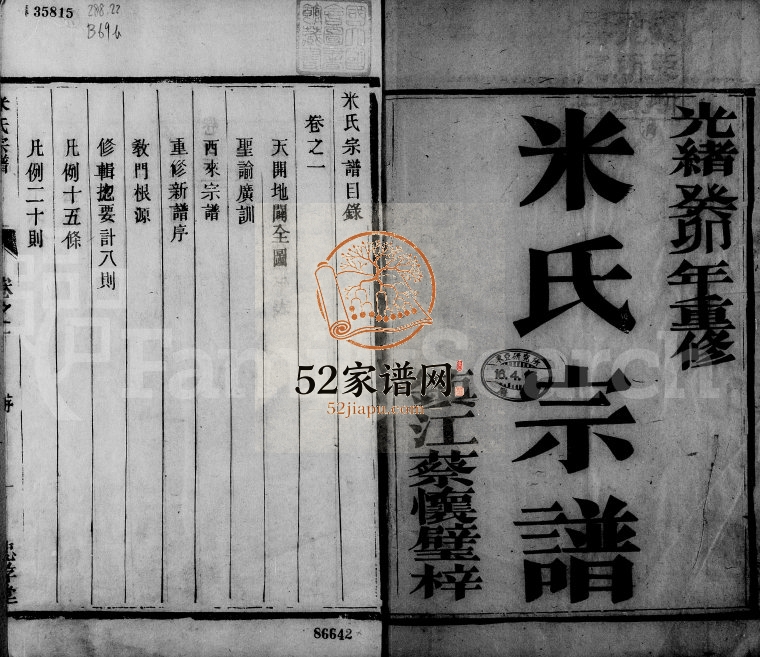 光緒癸卯年重修
米氏宗譜
鎮江蔡懷璧梓
米氏宗譜目錄
卷之一
天開地闢全圖
聖諭廣訓
西來宗譜
重修新譜序
教門根源
修輯揔要計八則
凡例十五條
凡例二十則
米氏宗譜
卷之一
忠孝堂
35815
288.22
B69b
86642
東亞研究所
16.4.
52家谱网
52jiapu.com
FamilySearch